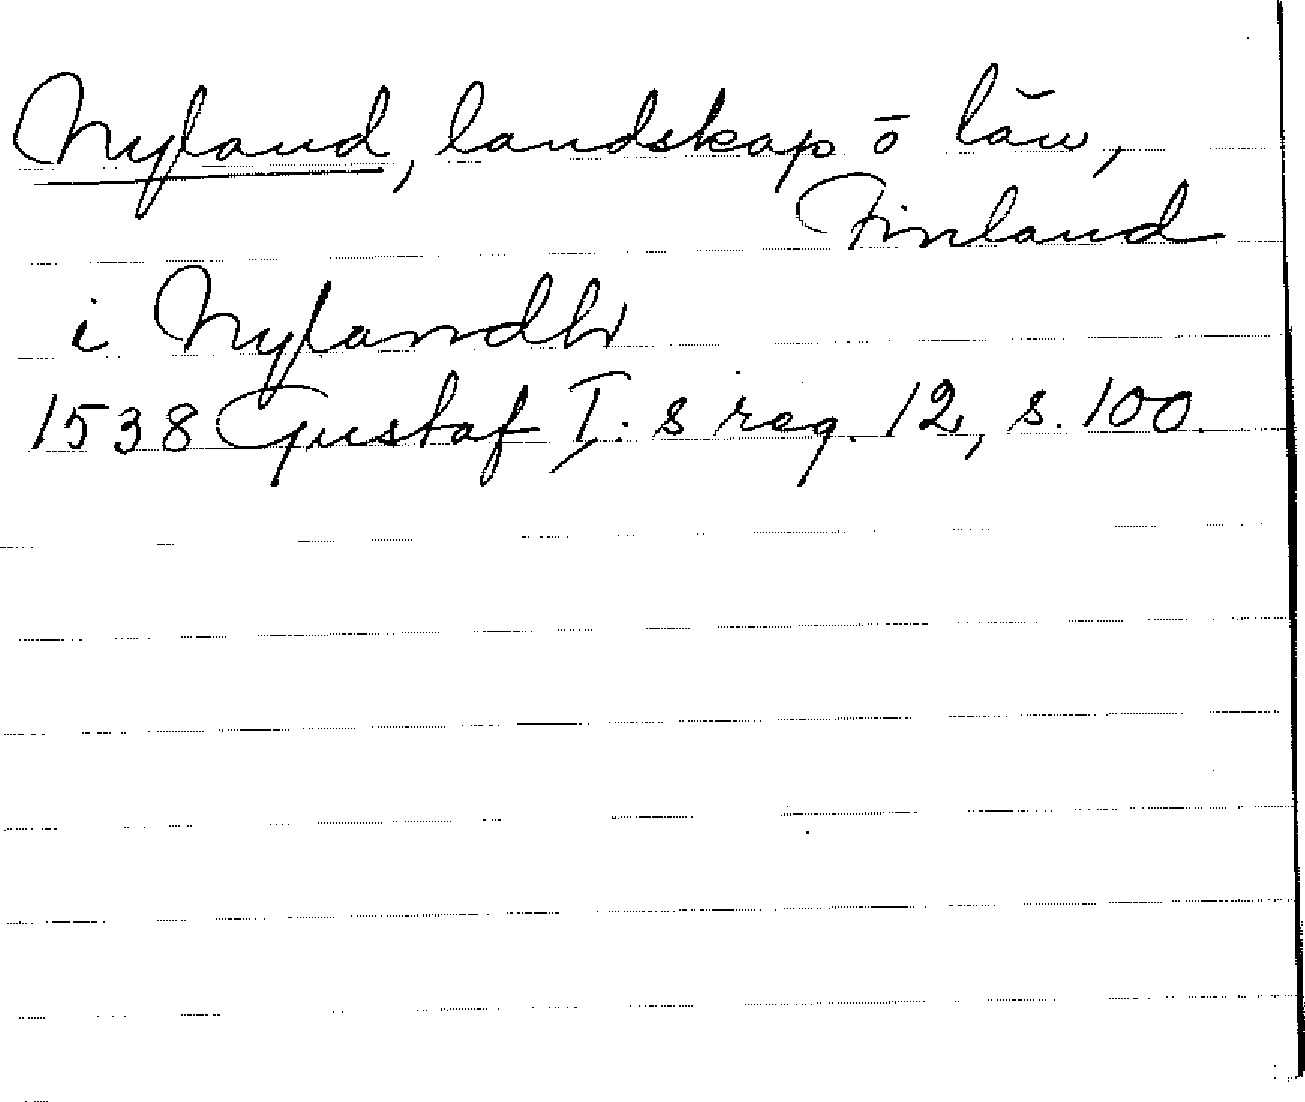 Nyland, landskap o län,
Finland
i Nylandh
1538 Gustaf I: s reg. 12, s. 100.